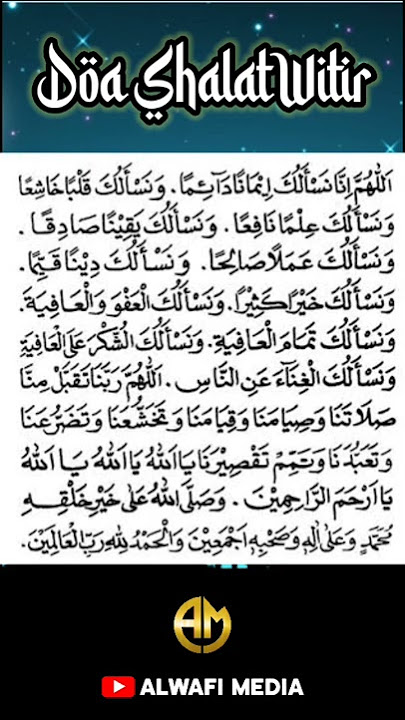 Döa Shalat Witir
اَللّٰهُمَّ اِنَّا نَسْأَلُكَ اِيْمَانًا دَآئِمًا. وَنَسْأَلُكَ قَلْبًا خَاشِعًا
وَنَسْأَلُكَ عِلْمًا نَافِعًا. وَنَسْأَلُكَ يَقِيْنًا صَادِقًا.
وَنَسْأَلُكَ عَمَلًا صَالِحًا. وَنَسْأَلُكَ دِيْنًا قَيِّمًا.
وَنَسْأَلُكَ خَيْرًا كَثِيْرًا. وَنَسْأَلُكَ الْعَفْوَ وَالْعَافِيَةَ.
وَنَسْأَلُكَ تَمَامَ الْعَافِيَةِ. وَنَسْأَلُكَ الشُّكْرَ عَلَى الْعَافِيَةِ
وَنَسْأَلُكَ الْغِنَآءَ عَنِ النَّاسِ. اَللّٰهُمَّ رَبَّنَا تَقَبَّلْ مِنَّا
صَلَاتَنَا وَصِيَامَنَا وَقِيَامَنَا وَتَخَشُّعَنَا وَتَضَرُّعَنَا
وَتَعَبُّدَنَا وَتَمِّمْ تَقْصِيْرَنَا يَا اَللهُ يَا اَللهُ يَا اَللهُ
يَا اَرْحَمَ الرَّاحِمِيْنَ. وَصَلَّى اللهُ عَلَى خَيْرِ خَلْقِهِ
مُحَمَّدٍ وَعَلَى اٰلِهِ وَصَحْبِهِ اَجْمَعِيْنَ وَالْحَمْدُ لِلّٰهِ رَبِّ الْعَالَمِيْنَ.
AM
ALWAFI MEDIA